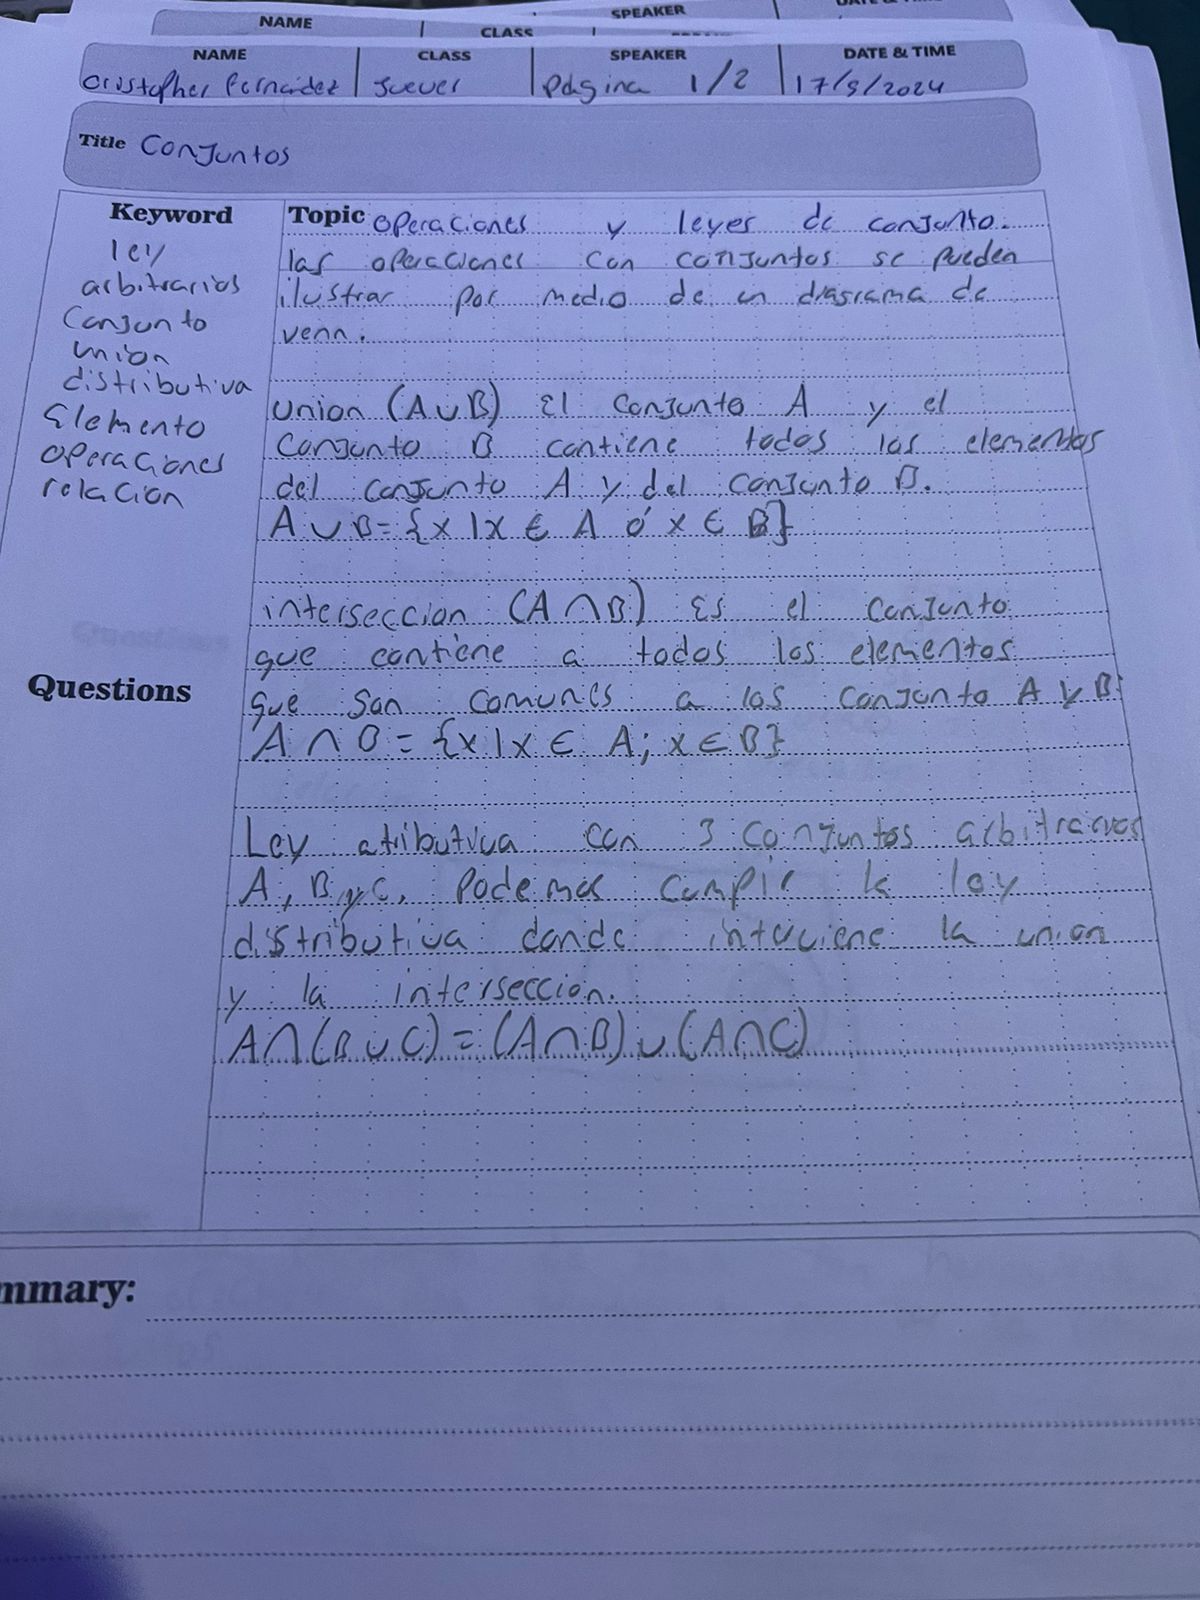 SPEAKER
NAME
CLASS
NAME CLASS SPEAKER DATE & TIME
Cristopher Fernandez Jueves Página 1/2 17/9/2024
Title Conjuntos
Keyword
ley
arbitrarios
Conjunto
union
distributiva
Elemento
operaciones
relacion
Questions
Topic operaciones y leyes de conjunto.
las operaciones con conjuntos se pueden
ilustrar por medio de un diagrama de
venn.
union (A∪B) El conjunto A y el
conjunto B contiene todos los elementos
del conjunto A y del conjunto B.
A∪B={x|x ∈ A ó x ∈ B}
interseccion (A∩B) Es el conjunto
que contiene a todos los elementos
que son comunes a los conjunto A y B.
A∩B={x|x ∈ A; x∈B}
Ley atributiva con 3 conjuntos arbitrarios
A, B y C, Podemos cumplir la ley
distributiva donde interviene la union
y la interseccion.
A∩(B∪C)=(A∩B)∪(A∩C)
mmary: